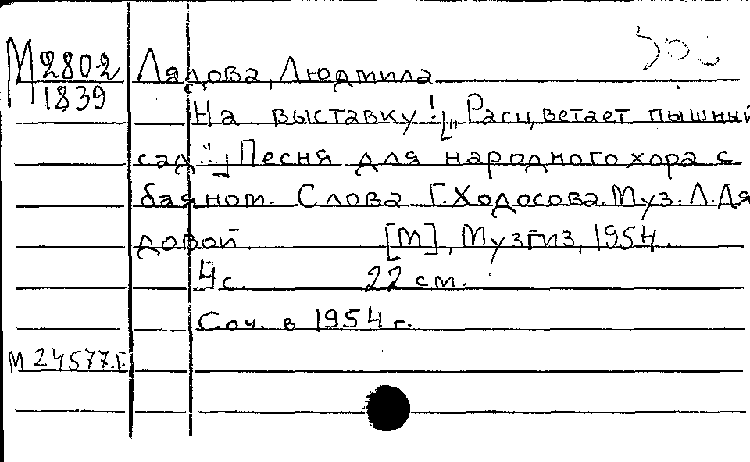 М2802
1839
Лядова, Людмила
На выставку! [„Расцветает пышный
сад..."] Песня для народного хора с
баяном. Слова Г. Ходосова. Муз. Л. Ля
довой. [М], Музгиз, 1954.
4 с. 22 см.
Соч. в 1954 г.
М 24577.Г.